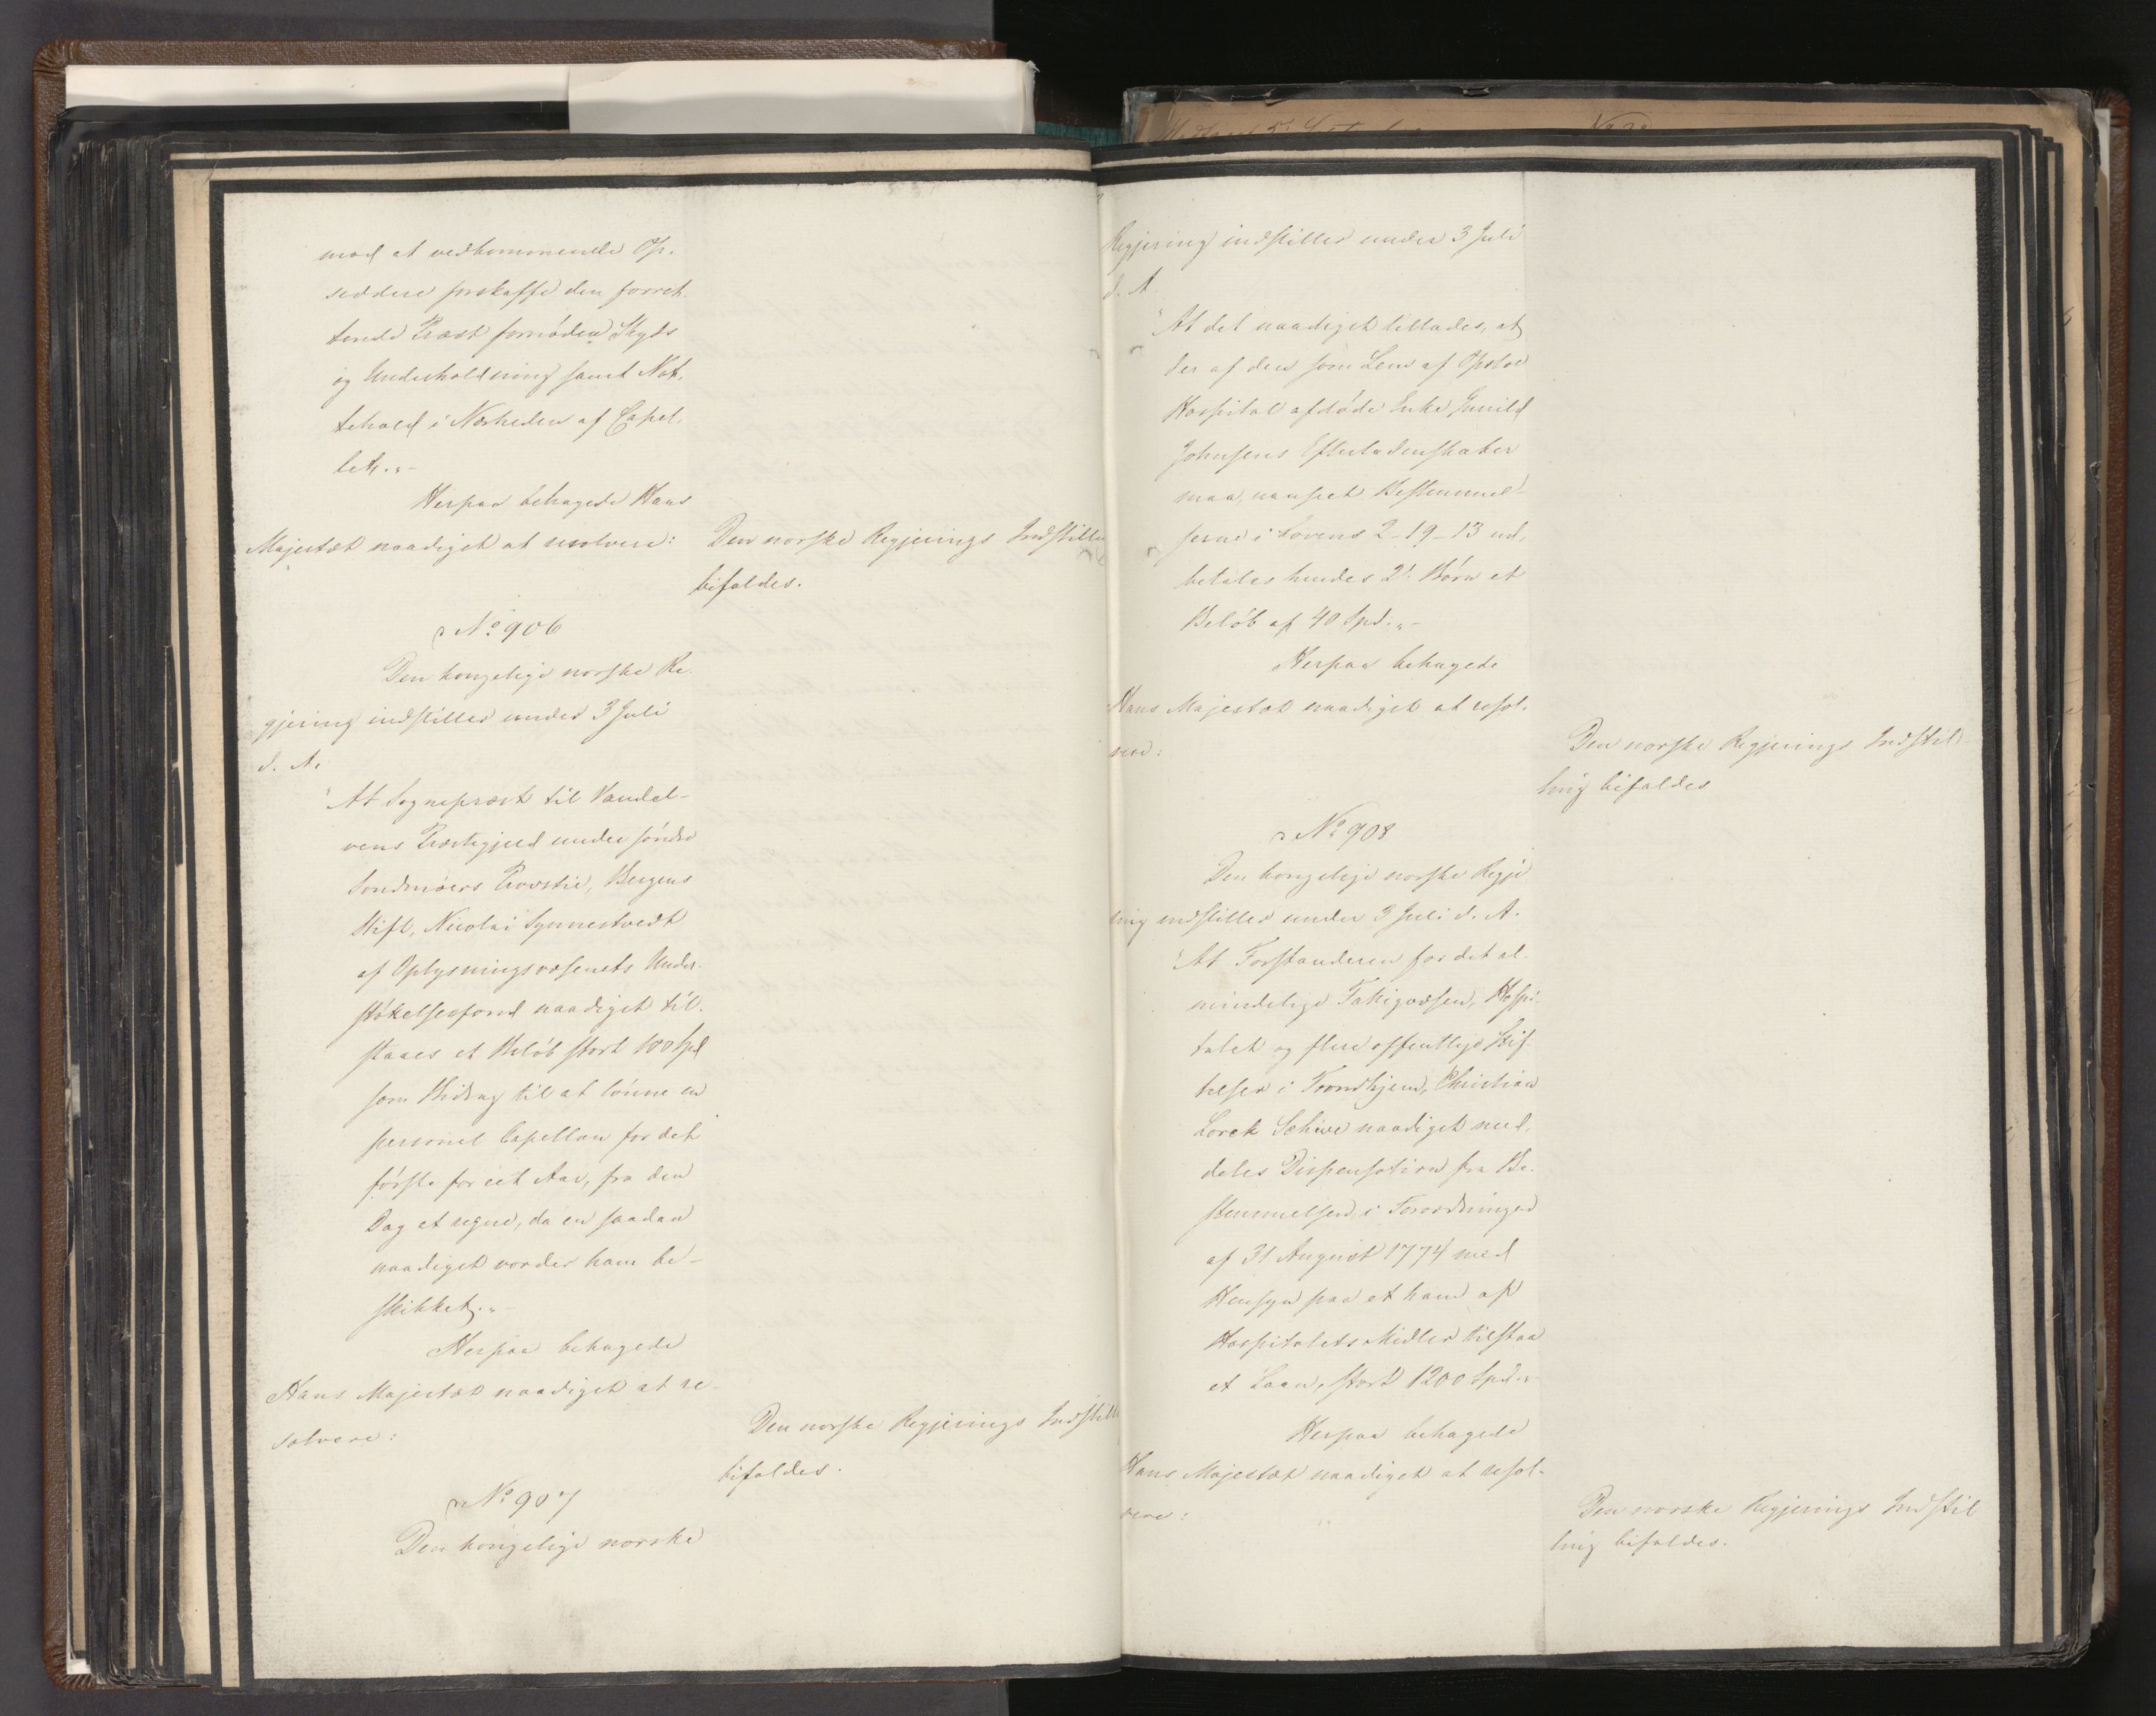 mod at vedkommende Op-
siddere forskaffe den forret-
tende Præst fornöden Skyds
og Underholdning samt Nat-
tehold i Nærheden af Capel-
let."-
Herpaa behagede Hans
Majestæt naadigst at resolvere:
Den norske Regjerings Indstilln
bifaldes.
No 906
Den kongelige norske Re-
gjering indstiller under 3 Juli
d. A.
"At Sognepræst til Vandal-
vens Præstegjeld under söndre
Sondmöers Provstie, Bergens
Stift, Nicolai Synnestvedt
af Oplysningsvæsenets Under-
stöttelsesfond naadigst til-
staaes et Belöb stort 100 Spd
som Bidrag til at lönne en
personel Capellan for det
förste for eet Aar, fra den
Dag at regne, da en saadan
naadigst vorder ham be-
skikket."-
Herpaa behagede
Hans Majestæt naadigst at re-
solvere:
Den norske Regjerings Indstill
bifaldes.
No 907
Den kongelige norske
Regjering indstiller under 3 Juli
d. A.
"At det naadigst tillades, at
der af den som Lem af Opsloe
Hospital afdöde Enke Gunild
Johnsens Efterladenskaber
maa, uanseet Bestemmel-
serne i Lovens 2-19-13 ud-
betales hendes 2de Börn et
Belöb af 40 Spd."-
Herpaa behagede
Hans Majestæt naadigst at resol-
vere:
Den norske Regjerings Indstil-
ling bifaldes
No 908
Den kongelige norske Regje
ring indstiller under 3 Juli d. A.
"At Forstanderen for det al-
mindelige Fattigvæsen, Hospi-
talet og flere offentlige Stif-
telser i Trondhjem, Christian
Lorck Schive naadigst med-
deles Dispensation fra Be-
stemmelsen i Forordningen
af 31 August 1774 med
Hensyn paa et ham af
Hospitalets Midler tilstaa
et Laan, stort 1200 Spd."-
Herpaa behagede
Hans Majestæt naadigst at resol-
vere:
Den norske Regjerings Indstil
ling bifaldes.